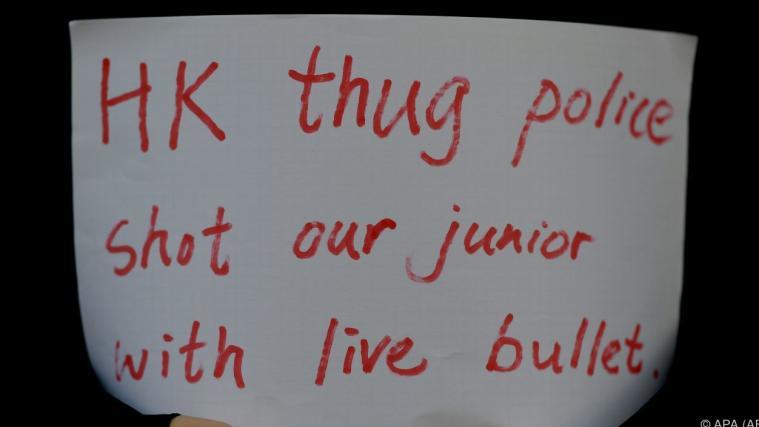 HK thug police
shot our junior
with live bullet.
© APA (A